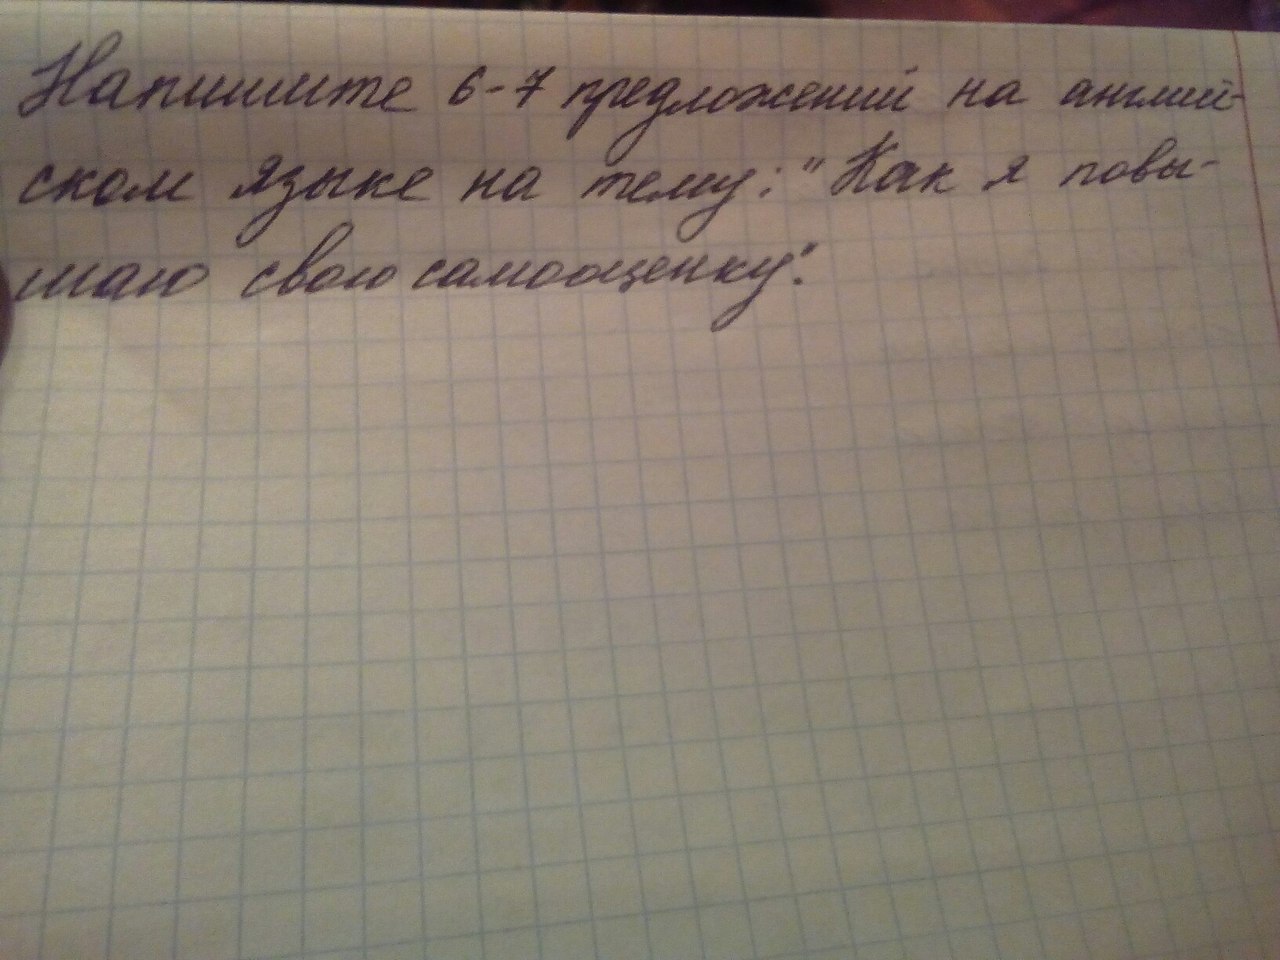 Напишите 6-7 предложений на англий-
ском языке на тему: "Как я повы-
шаю свою самооценку".